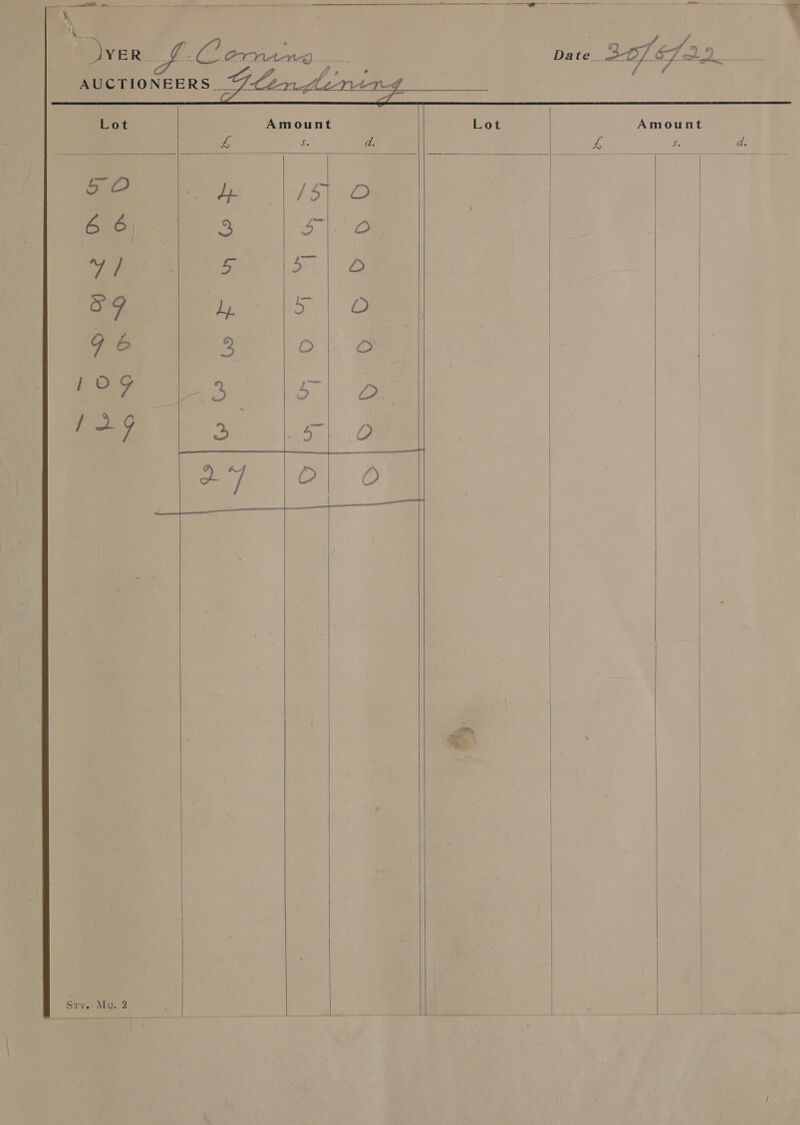 BUYER J. Corning Date 30/6/22
AUCTIONEERS Glendining
Lot Amount Lot Amount
£ s. d. £ s. d.
50 4 15 0
66 3 5 0
71 5 5 0
89 4 5 0
96 3 0 0
109 3 5 0
129 3 5 0
27 0 0
Srv. Mu. 2